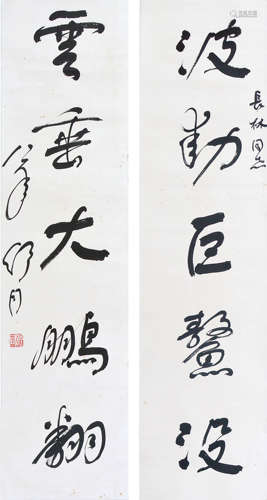 波動巨鰲沒
長林同志
雲垂大鵬翻
舒同